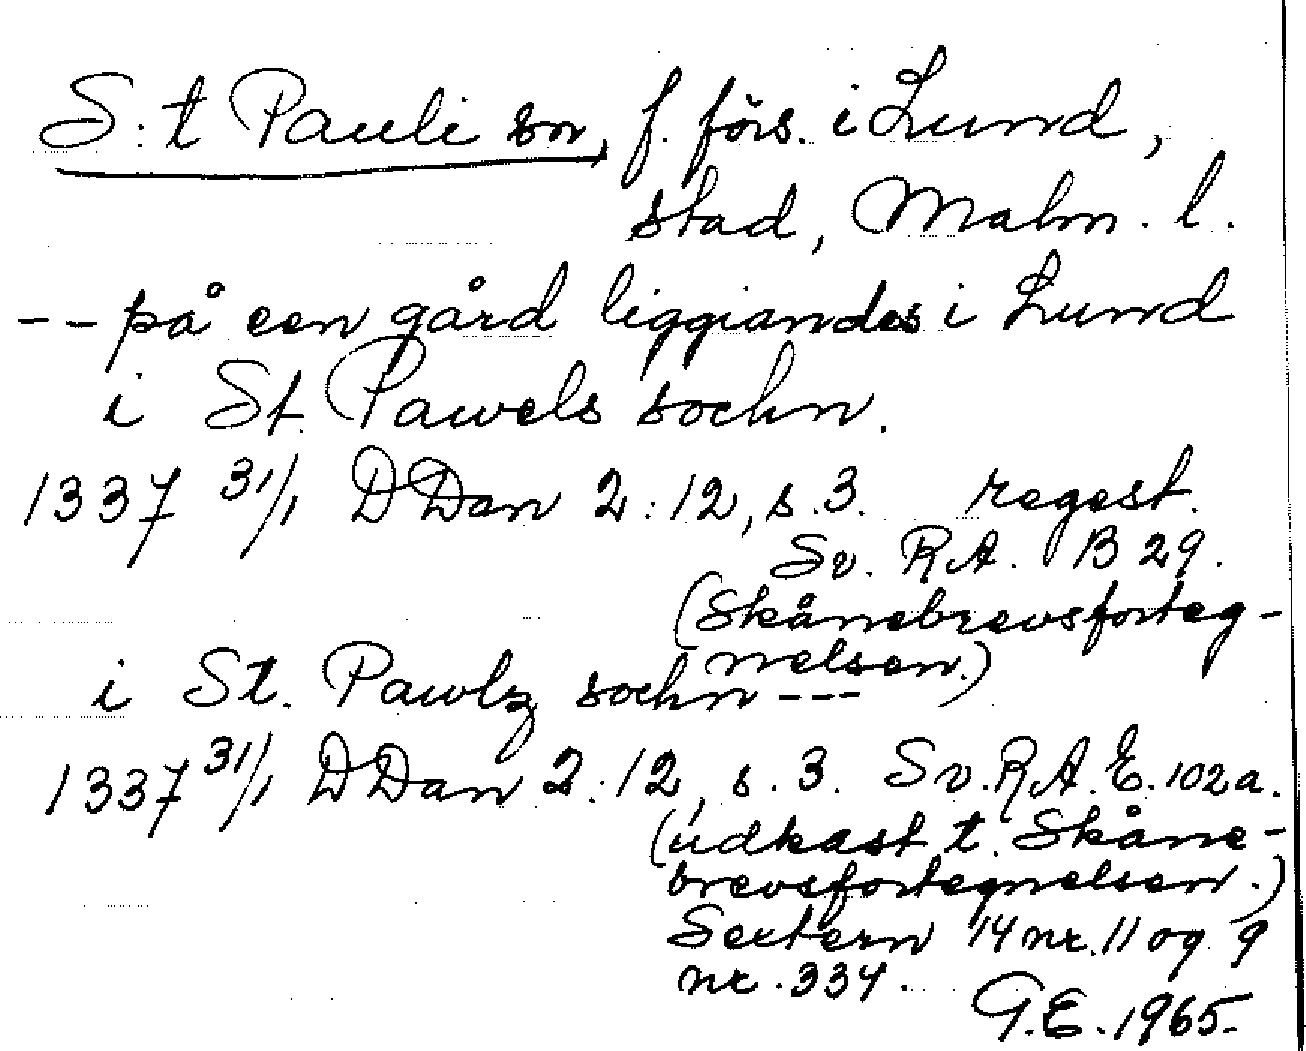 S:t Pauli sn, f. förs. i Lund,
stad, Malm. l.
-- på een gård liggiandes i Lund
i St. Pawels sochn.
1337 31/1 DDan 2:12, s.3. regest.
Sv. RA. B 29.
(Skånebrevsforteg-
nelsen.)
i St. Pawlz sochn ---
1337 31/1 DDan 2:12, s.3. Sv. RA. E. 102a.
(udkast t. Skåne-
brevsfortegnelsen.)
Sextern 14 nr. 11 og 9
nr. 334.
G.E. 1965.